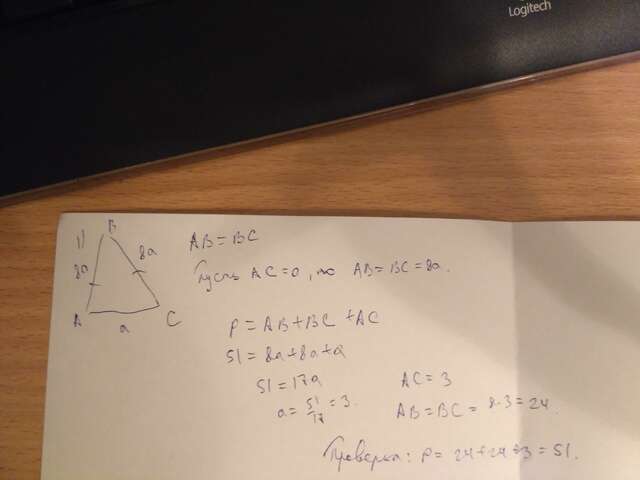 Logitech
1)
B
8a
8a
A
C
a
AB = BC
Пусть AC = a, то AB = BC = 8a.
P = AB + BC + AC
51 = 8a + 8a + a
51 = 17a
a = 51/17 = 3.
AC = 3
AB = BC = 8·3 = 24.
Проверка: P = 24 + 24 + 3 = 51.